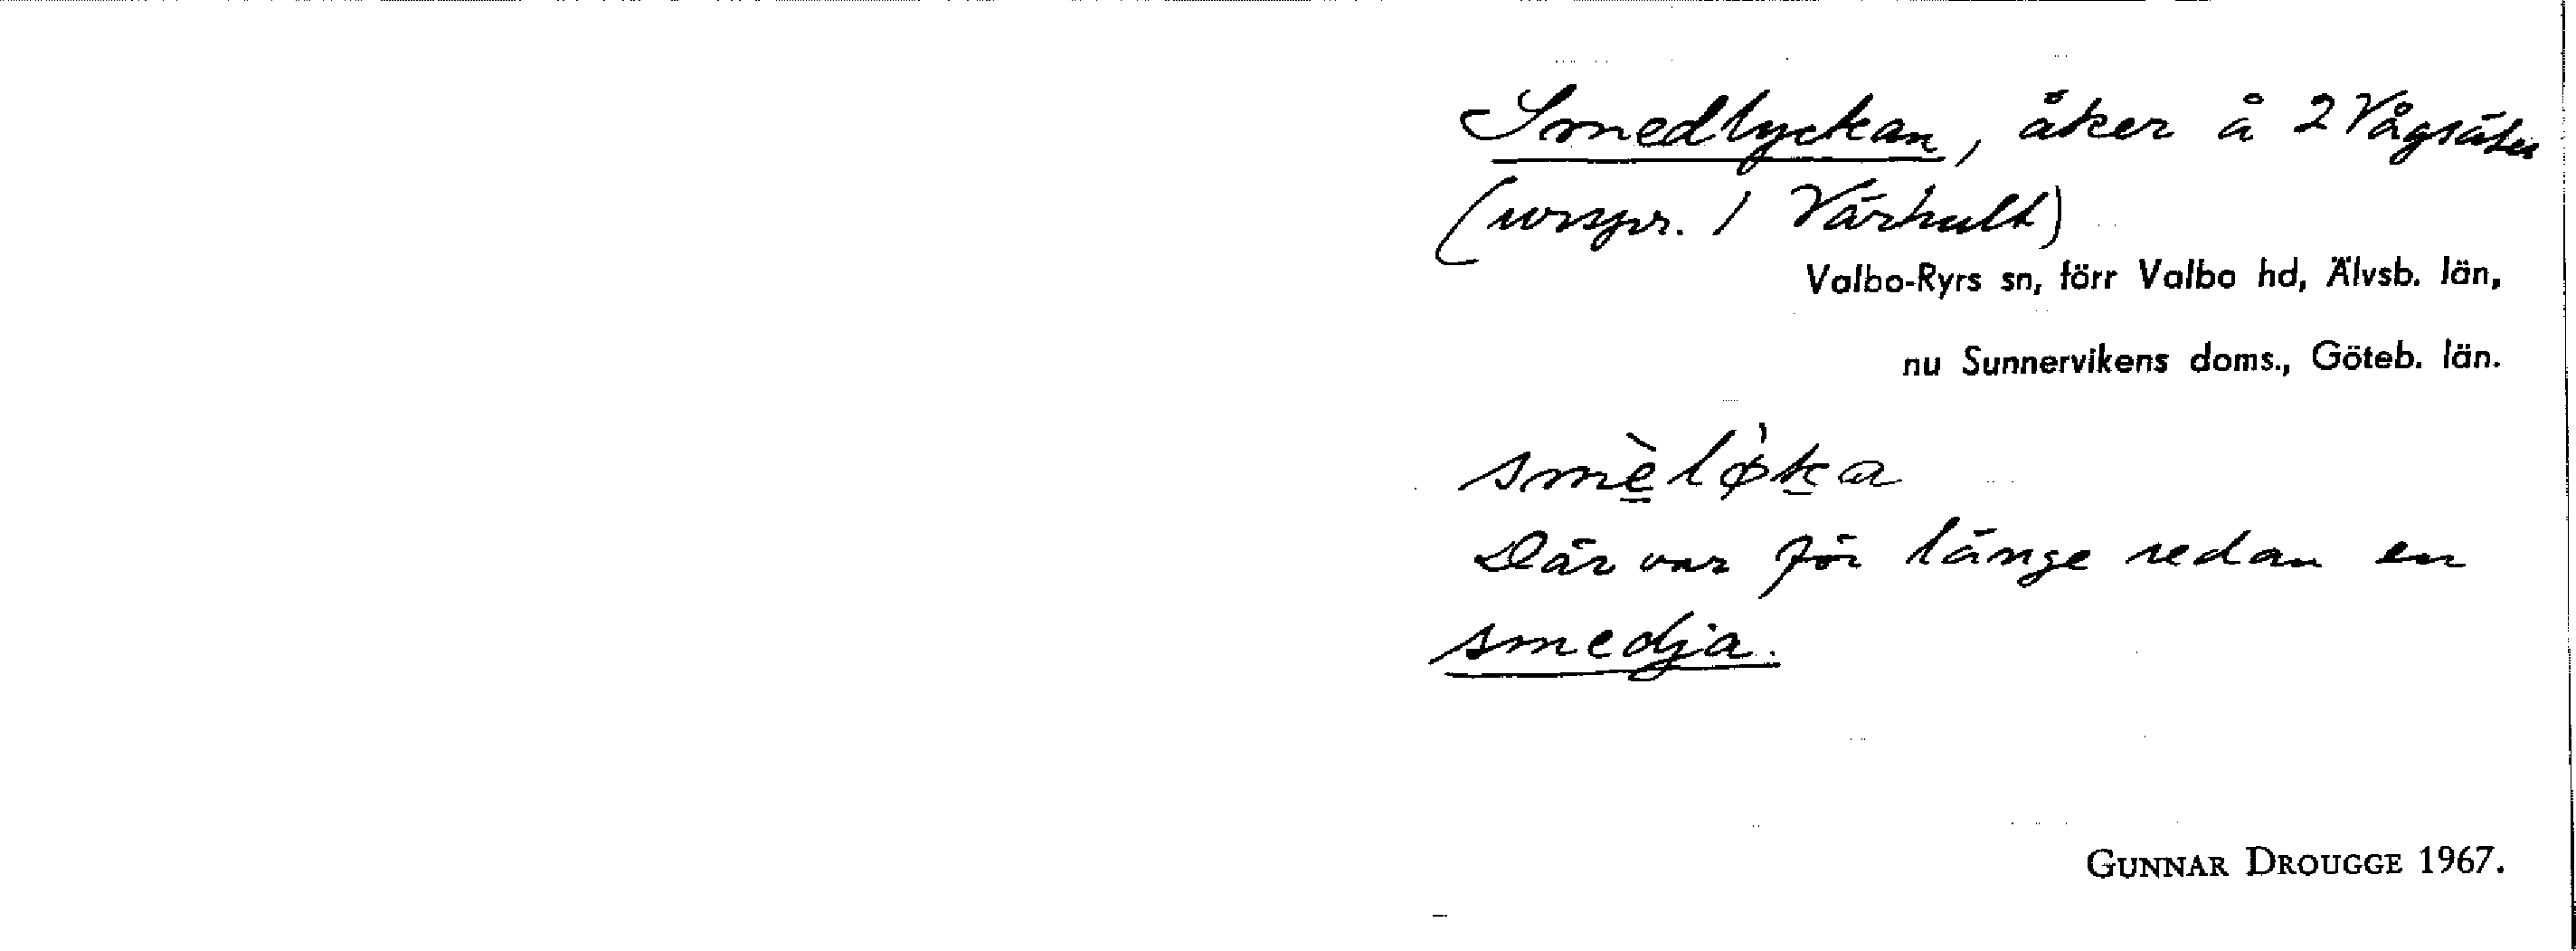 Smedlyckan, åker å 2 Vågsäter
(urspr. 1 Värhult)
Valbo-Ryrs sn, förr Valbo hd, Älvsb. län,
nu Sunnervikens doms., Göteb. län.
smè̠lø̀ka
Där var för länge redan en
smedja.
GUNNAR DROUGGE 1967.